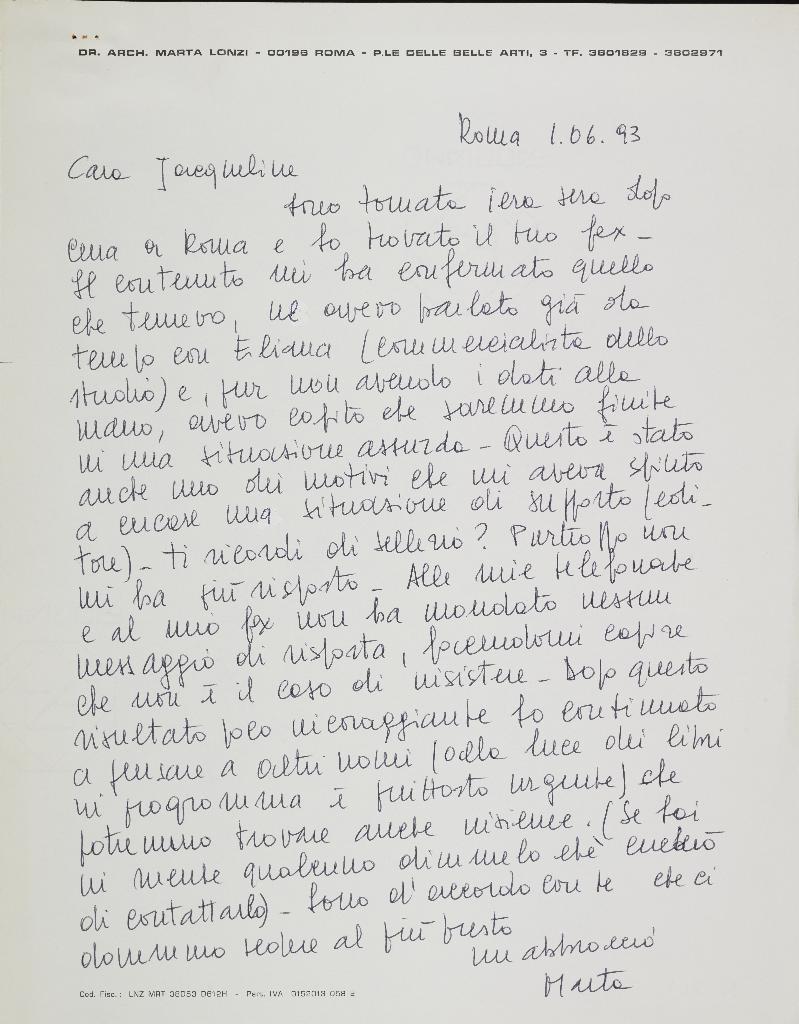 DR. ARCH. MARTA LONZI - 00196 ROMA - P.LE DELLE BELLE ARTI, 3 - TF. 3601829 - 3602971
Roma 1.06.93
Cara Jacqueline
sono tornata iera sera dopo
cena a Roma e ho trovato il tuo fax -
Il contenuto mi ha confermato quello
che temevo, ne avevo parlato già da
tempo con Eliana (commercialista dello
studio) e, pur non avendo i dati alla
mano, avevo capito che saremmo finite
in una situazione assurda - Questo è stato
anche uno dei motivi che mi aveva spinto
a cercare una situazione di supporto (edi-
tore) - Ti ricordi di Sellerio? Purtroppo non
mi ha più risposto - Alle mie telefonate
e al mio fax non ha mandato nessun
messaggio di risposta, facendomi capire
che non è il caso di insistere - Dopo questo
risultato poco incoraggiante ho continuato
a pensare a altri nomi (alla luce dei libri
in programma è piuttosto urgente) che
potremmo trovare anche insieme. (Se hai
in mente qualcuno dimmelo chè cercherò
di contattarlo) - Sono d'accordo con te che ci
dovremmo vedere al più presto
un abbraccio
Marta
Cod. Fisc.: LNZ MRT 38D53 D612H - Part. IVA